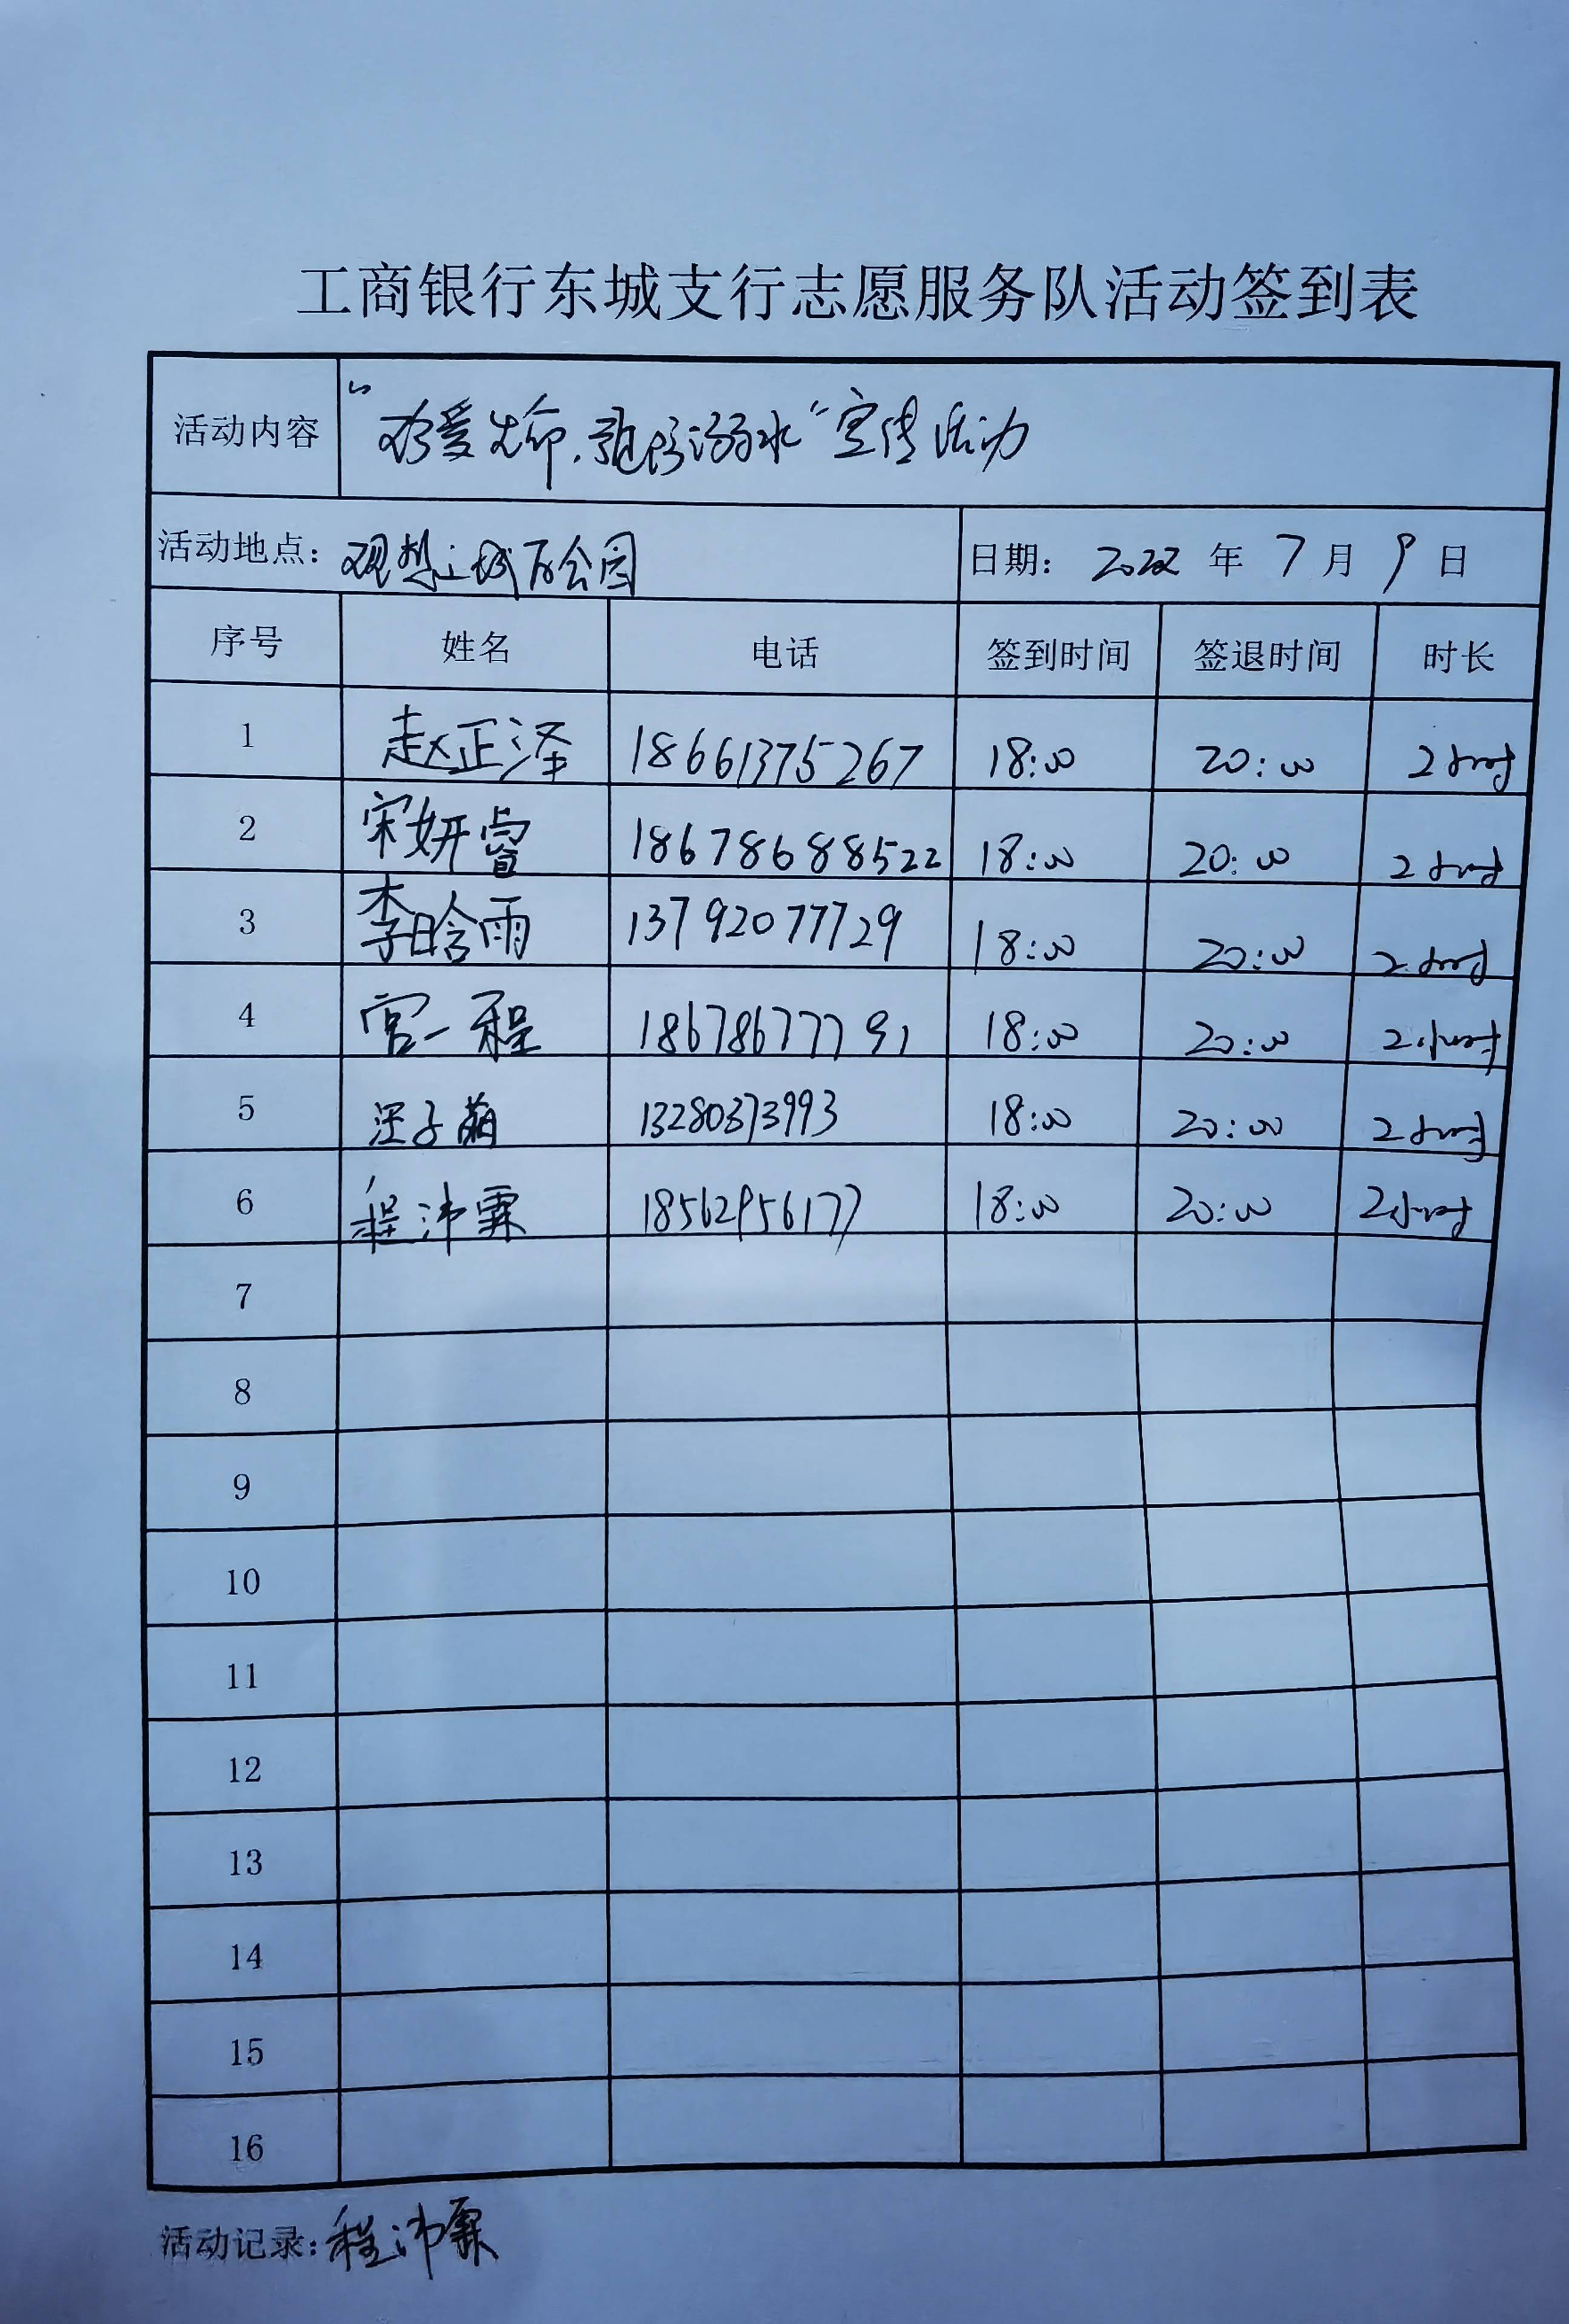 工商银行东城支行志愿服务队活动签到表
活动内容 “珍爱生命,预防溺水”宣传活动
活动地点: 公园 日期: 2022 年 7 月 9 日
序号 姓名 电话 签到时间 签退时间 时长
1 赵正泽 18661375267 18:00 20:00 2小时
2 宋妍睿 18678688522 18:00 20:00 2小时
3 李晗雨 13792077729 18:00 20:00 2小时
4 官一程 18678677791 18:00 20:00 2小时
5 汪子萌 13280373993 18:00 20:00 2小时
6 程沛霖 18562956177 18:00 20:00 2小时
7
8
9
10
11
12
13
14
15
16
活动记录: 程沛霖